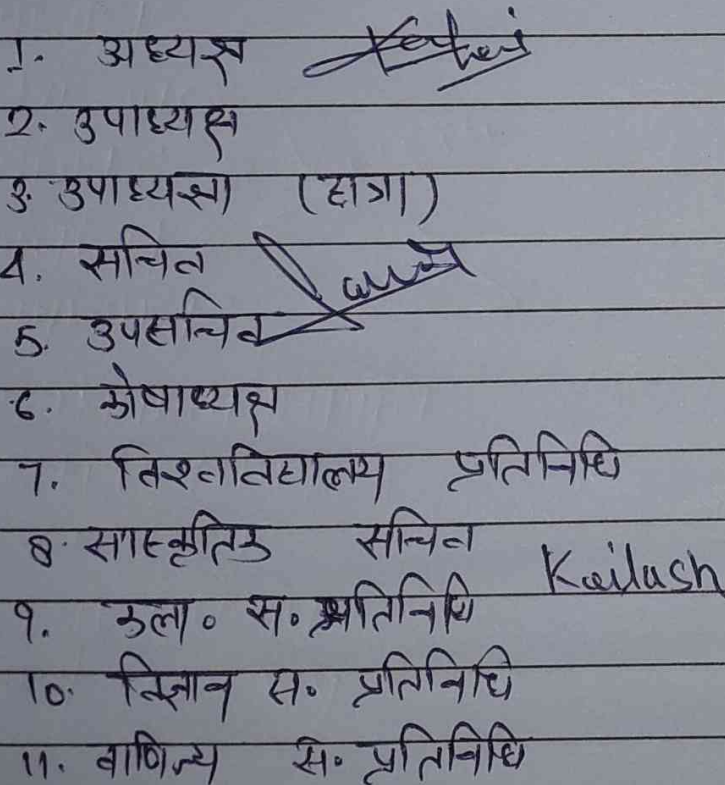 1. अध्यक्ष
2. उपाध्यक्ष
3. उपाध्यक्षा (छात्रा)
4. सचिव
5. उपसचिव
6. कोषाध्यक्ष
7. विश्वविद्यालय प्रतिनिधि
8. सांस्कृतिक सचिव
Kailash
9. कला॰ स॰ प्रतिनिधि
10. विज्ञान स॰ प्रतिनिधि
11. वाणिज्य स॰ प्रतिनिधि